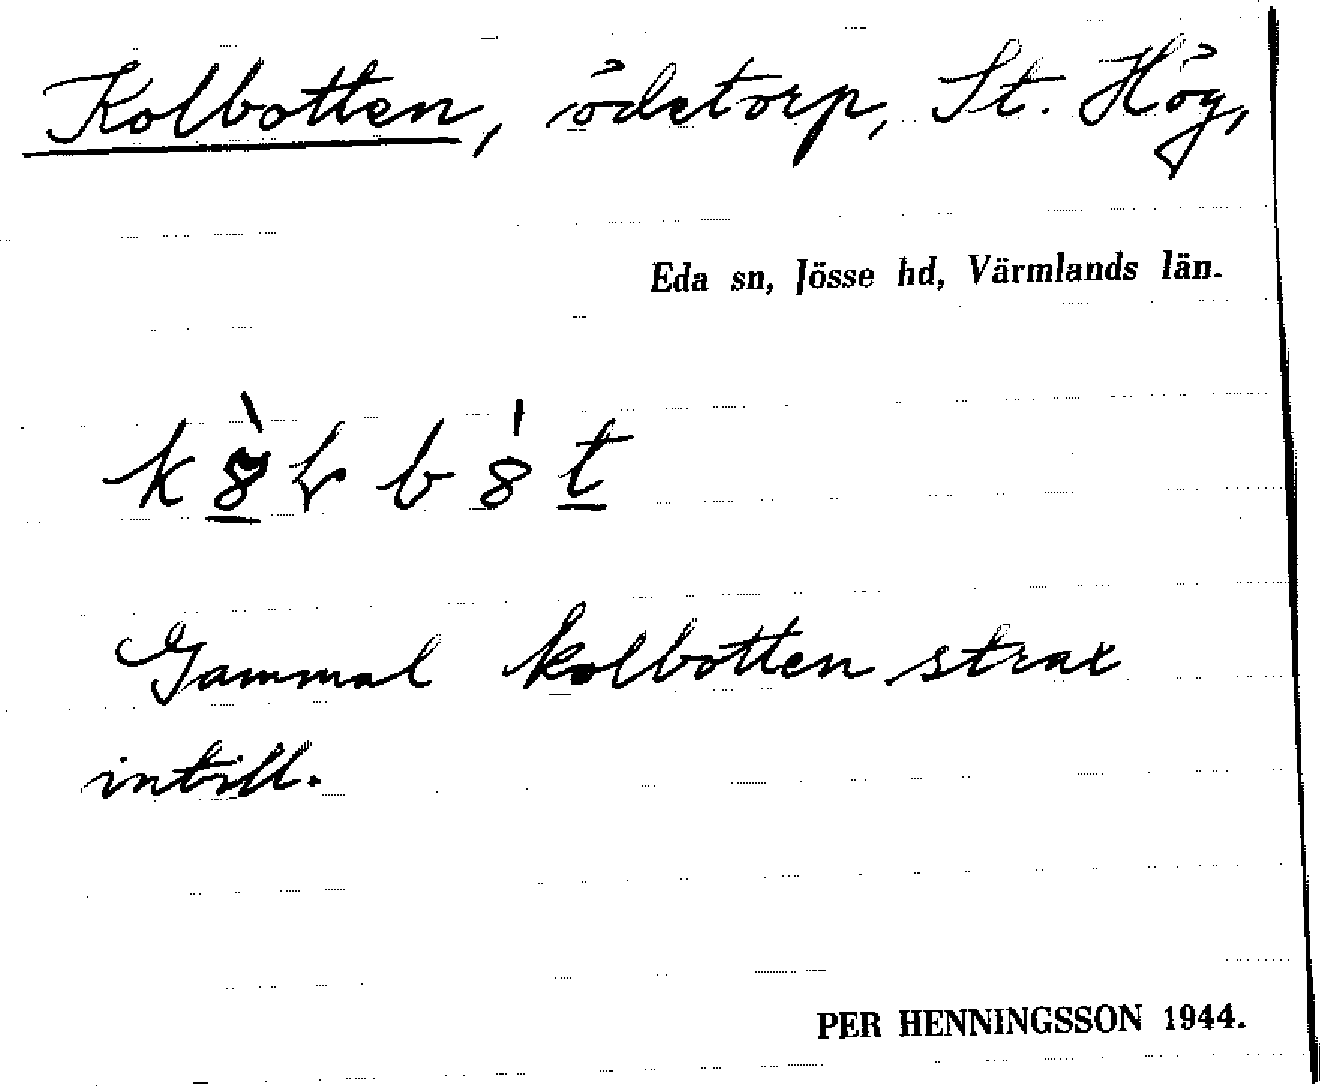 Kolbotten, ödetorp, St. Hög,
Eda sn, Jösse hd, Värmlands län.
Gammal kolbotten strax
intill.
PER HENNINGSSON 1944.